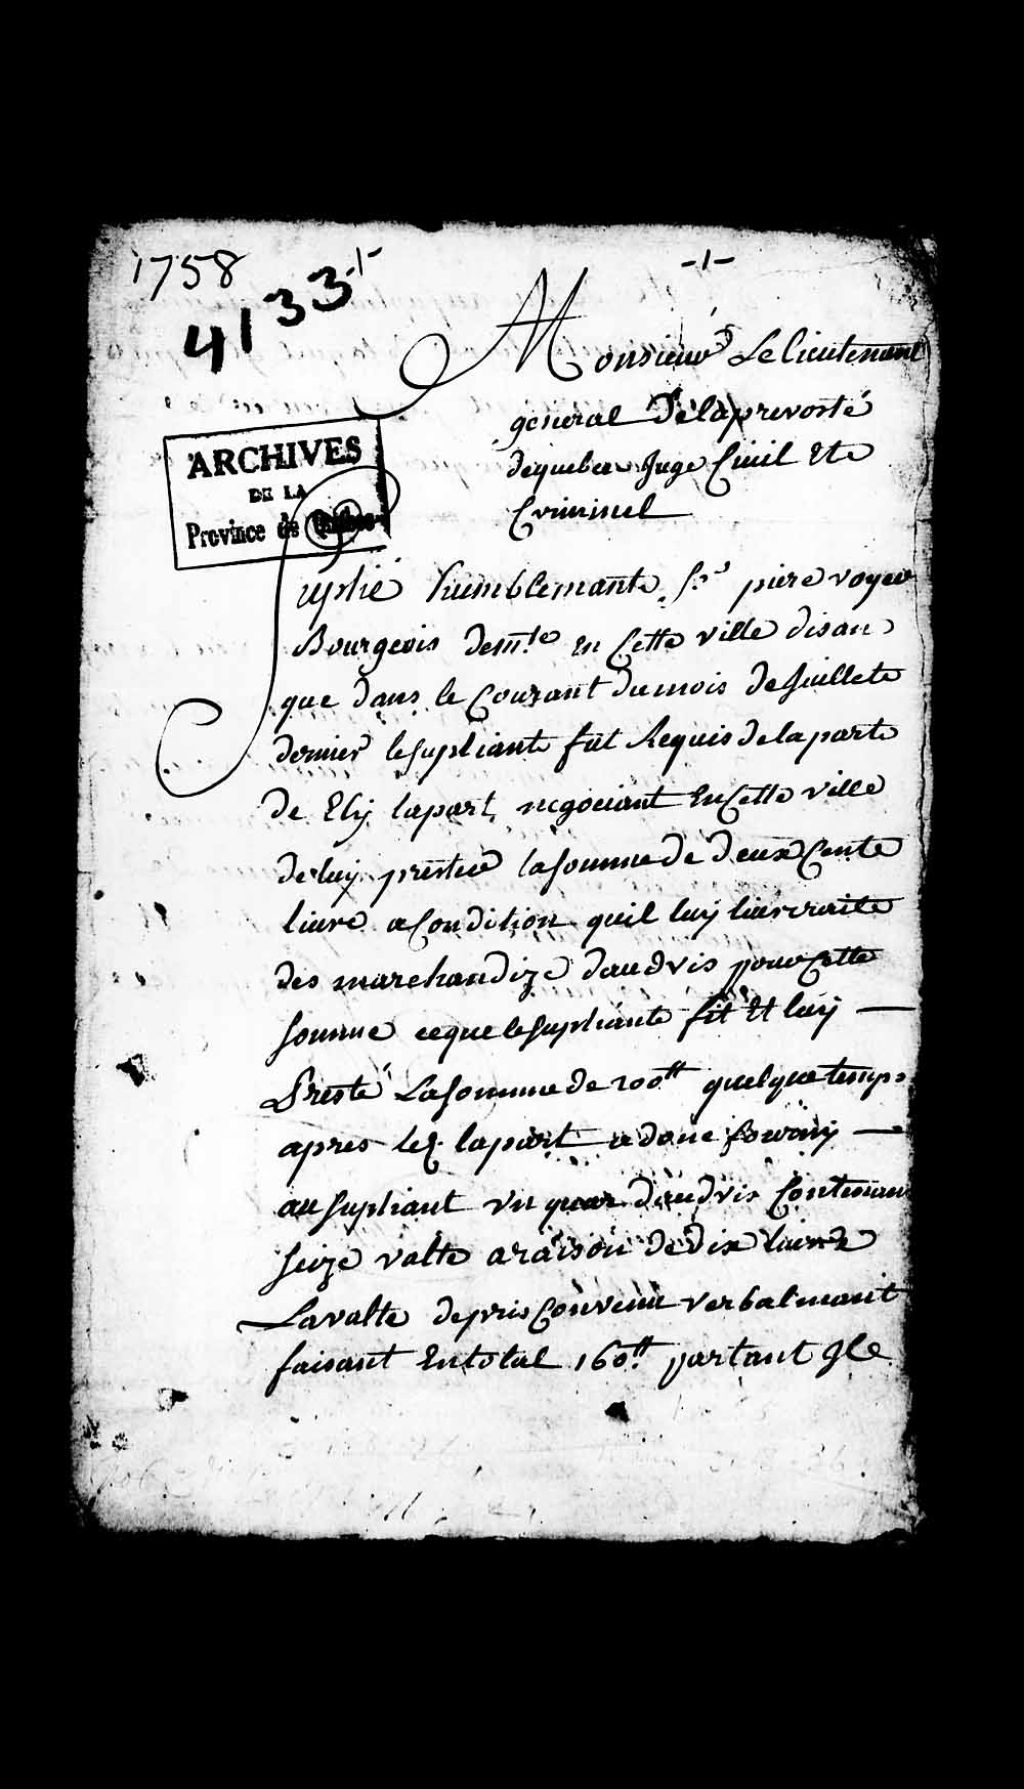 1758
4133-1-
-1-
Monsieur Le lieutenant
general Delaprevosté
dequebec Juge Civil Ete
Criminel
ARCHIVES
DE LA
Province de Québec
Suplié humblemante Sr piere voyer
Bourgeois demte En Cette ville disan
que dans le Courant dumois deJuillete
dernier lesupliante fut Requis delaparte
de Ely lapart negociant EnCette ville
deluy prester lasomme de deuxCente
livre aCondition quil luy livreraite
des marchandize daudvis pourCette
somme ceque lesupliante fit Et luy
Presté Lasomme de 200tt quelquetemps
apres led lapart adone
au supliant un quar daudvis Contenan
seize valte araison dedix livre
Lavalte depris Convenu verbalmant
faisant Entotal 160tt partant